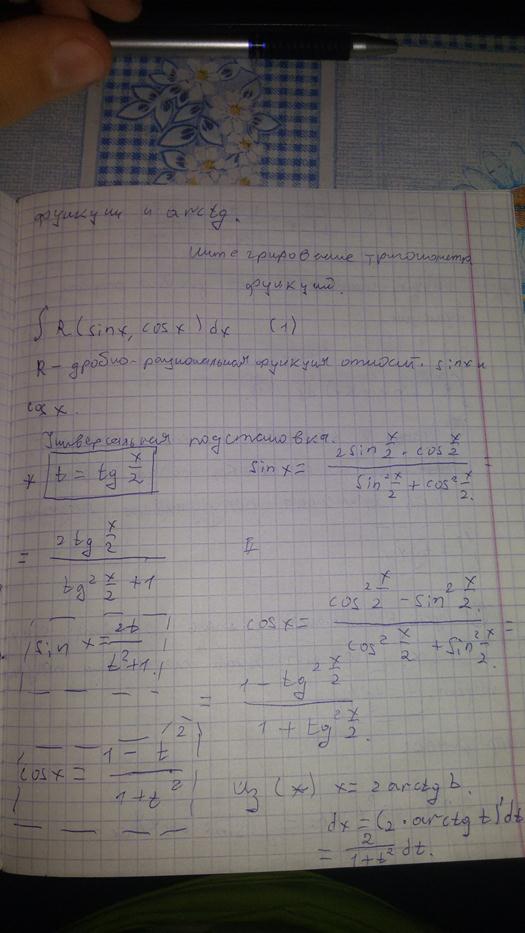 функции и arctg.
Интегрирование тригонометр
функций.
∫ R(sinx, cosx) dx (1)
R - дробно-рациональная функция относит. sinx и
cos x.
Универсальная подстановка.
* t = tg x/2 sin x = (2 sin x/2 · cos x/2)/(sin² x/2 + cos² x/2) =
= (2 tg x/2)/(tg² x/2 + 1)
sin x = 2t/(t²+1) cos x = (cos² x/2 - sin² x/2)/(cos² x/2 + sin² x/2) =
= (1 - tg² x/2)/(1 + tg² x/2)
cosx = (1 - t²)/(1+t²)
Из (*) x = 2 arctg t.
dx = (2 · arctg t)' dt
= 2/(1+t²) dt.